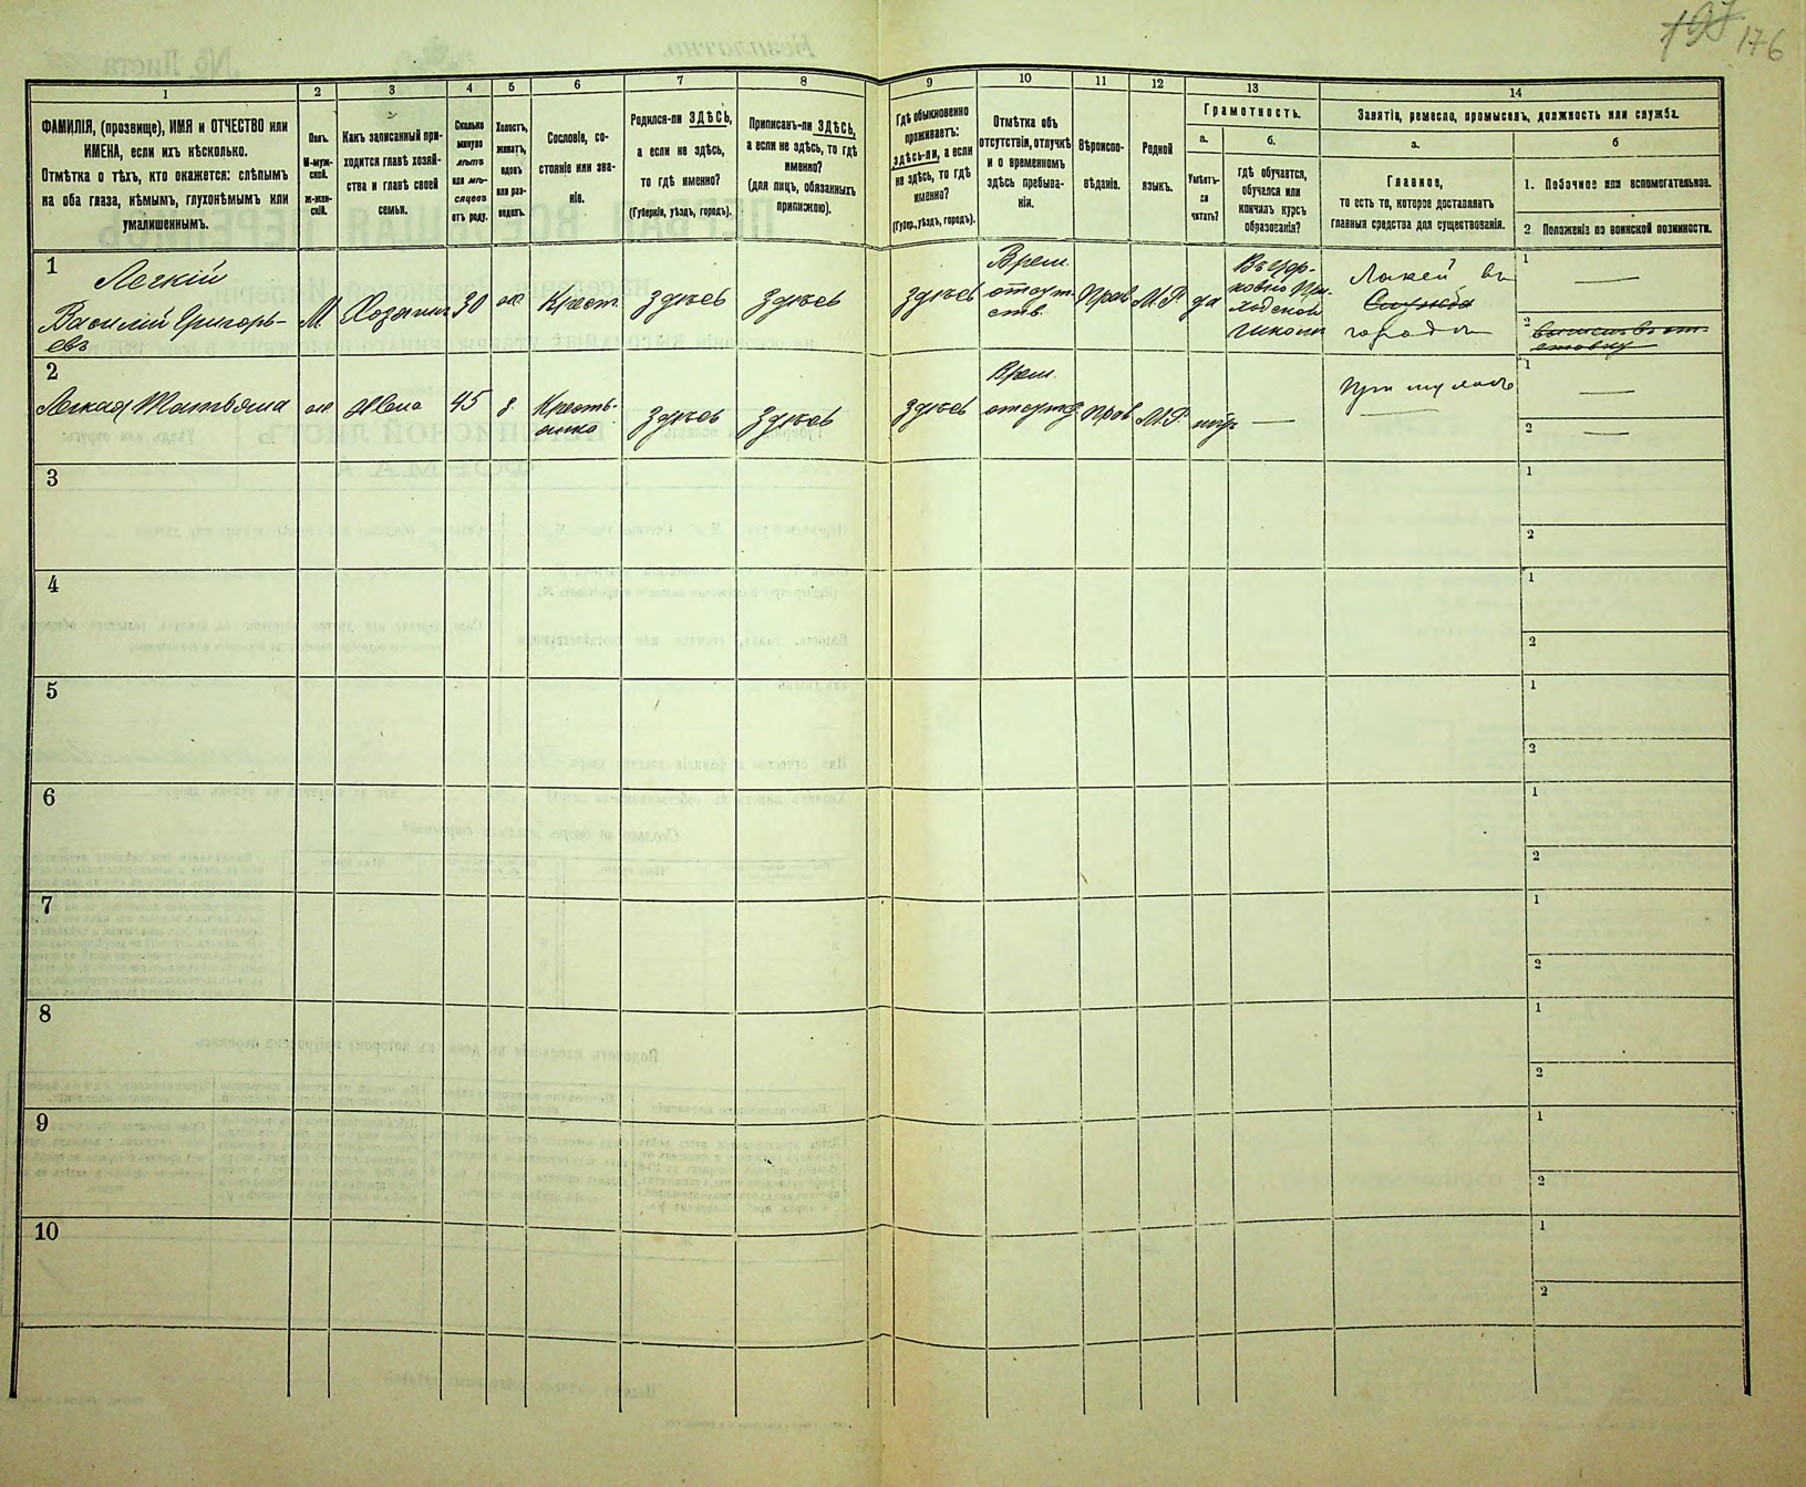 197 176
1
2
3
4
5
6
7
8
9
10
11
12
13
14
ФАМИЛІЯ, (прозвище), ИМЯ и ОТЧЕСТВО или
ИМЕНА, если ихъ нѣсколько.
Отмѣтка о тѣхъ, кто окажется: слѣпымъ
на оба глаза, нѣмымъ, глухонѣмымъ или
умалишеннымъ.
Полъ.
М-муж-
ской.
Ж-жен-
скій.
Какъ записанный при-
ходится главѣ хозяй-
ства и главѣ своей
семьи.
Сколько
минуло
лѣтъ
или мѣ-
сяцевъ
отъ роду.
Холостъ,
женатъ,
вдовъ
или раз-
веденъ.
Сословіе, со-
стояніе или зва-
ніе.
Родился-ли ЗДѢСЬ,
а если не здѣсь,
то гдѣ именно?
(Губернія, уѣздъ, городъ).
Приписанъ-ли ЗДѢСЬ,
а если не здѣсь, то гдѣ
именно?
(для лицъ, обязанныхъ
припискою).
Гдѣ обыкновенно
проживаетъ:
здѣсь-ли, а если
не здѣсь, то гдѣ
именно?
(Губер., уѣздъ, городъ).
Отмѣтка объ
отсутствіи, отлучкѣ
и о временномъ
здѣсь пребыва-
ніи.
Вѣроиспо-
вѣданіе.
Родной
языкъ.
Грамотность.
а.
Умѣетъ-
ли
читать?
б.
гдѣ обучается,
обучался или
кончилъ курсъ
образованія?
Занятіе, ремесло, промыселъ, должность или служба.
а.
Главное,
то есть то, которое доставляетъ
главныя средства для существованія.
б
1. Побочное или вспомогательное.
2 Положеніе по воинской повинности.
1
Легкій
Василій Григорь-
евъ
М.
Хозяинъ
30
Крест.
Здѣсь
Здѣсь
Здѣсь
Врем.
отсут-
ств.
Прав
М.Р.
да
Въ цер-
ковно При-
ходской
школѣ
Лакей въ
Служба
городѣ
1
—
2
2
Легкая Татьяна
ж.
Жена
45
З.
Кресть-
янка
Здѣсь
Здѣсь
Здѣсь
Врем.
отсутс
Прав
М.Р.
нѣтъ
—
При мужѣ
1
—
2
—
3
1
2
4
1
2
5
1
2
6
1
2
7
1
2
8
1
2
9
1
2
10
1
2